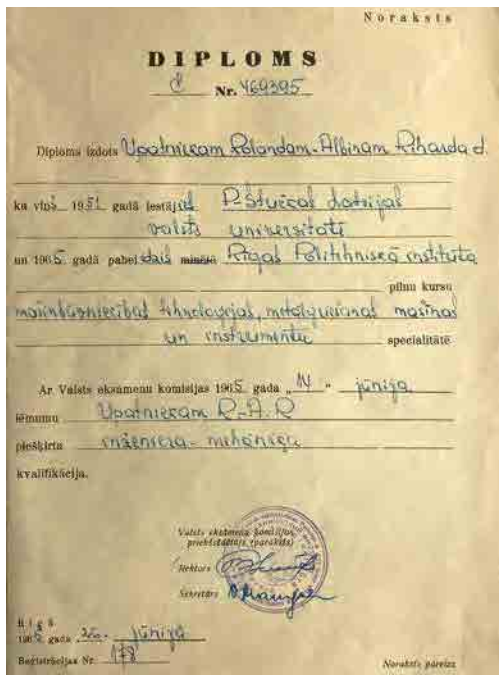 Noraksts
DIPLOMS
Nr. 469395
Diploms izdots Upatniekam Rolandam-Albinam Riharda d.
ka viņš 1951 gadā iestājies P. Stučkas Latvijas
valsts universitātē
un 1965 gadā pabeidzis minētā Rīgas Politehniskā institūta
pilnu kursu
mašīnbūvniecības tehnoloģijas, metālgriešanas mašīnas
un instrumentu specialitātē
Ar Valsts eksāmenu komisijas 1965 gada „14" jūnija
lēmumu Upatniekam R-A. R
piešķirta inženiera-mehāniķa
kvalifikācija.
Valsts eksāmenu komisijas
priekšsēdētājs (paraksts)
Rektors
Sekretārs
Rīgā
1965 gada jūnijā
Reģistrācijas Nr. 178
Noraksts pareizs